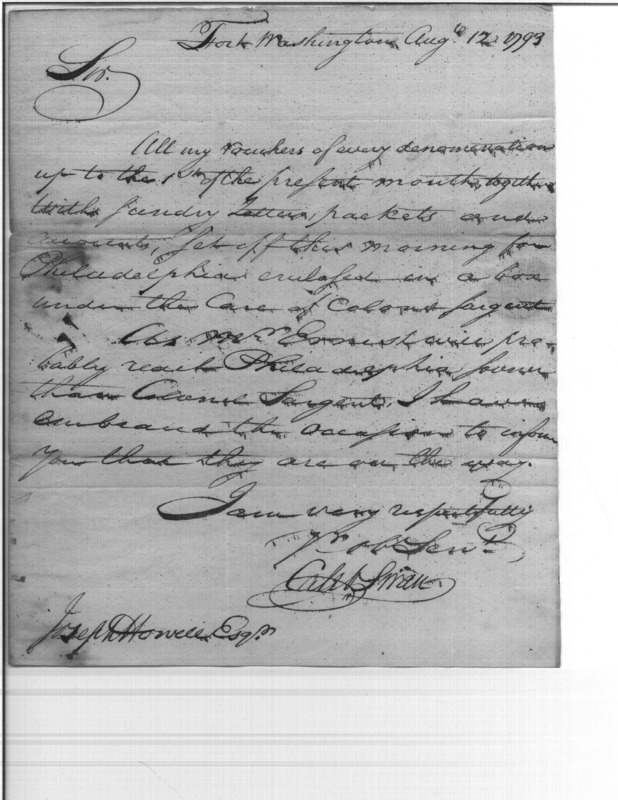 Fort Washington Augt. 12 1793
Sir.
All my vouchers of every denomination
up to the 1st of the present month, together
with sundry Letters, packets and
accounts, set off this morning for
Philadelphia enclosed in a box
under the Care of Colonel Sargent
As Mr. Ernest will pro-
bably reach Philadelphia sooner
than Colonel Sargent, I have
embraced the occasion to inform
you that they are on the way.
I am very respectfully
Yr. ob Servt.
Caleb Swan
Joseph Howell Esqr.